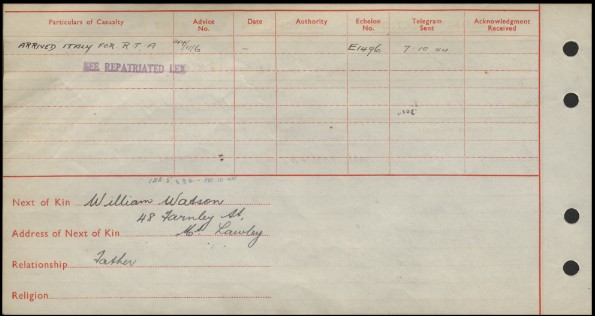 Particulars of Casualty Advice No. Date Authority Echelon No. Telegram Sent Acknowledgment Received
ARRIVED ITALY FOR R.T.A E1496 7-10-44
SEE REPATRIATED LEX
Next of Kin William Watson
48 Farnley St,
Address of Next of Kin Mt Lawley
Relationship Father
Religion